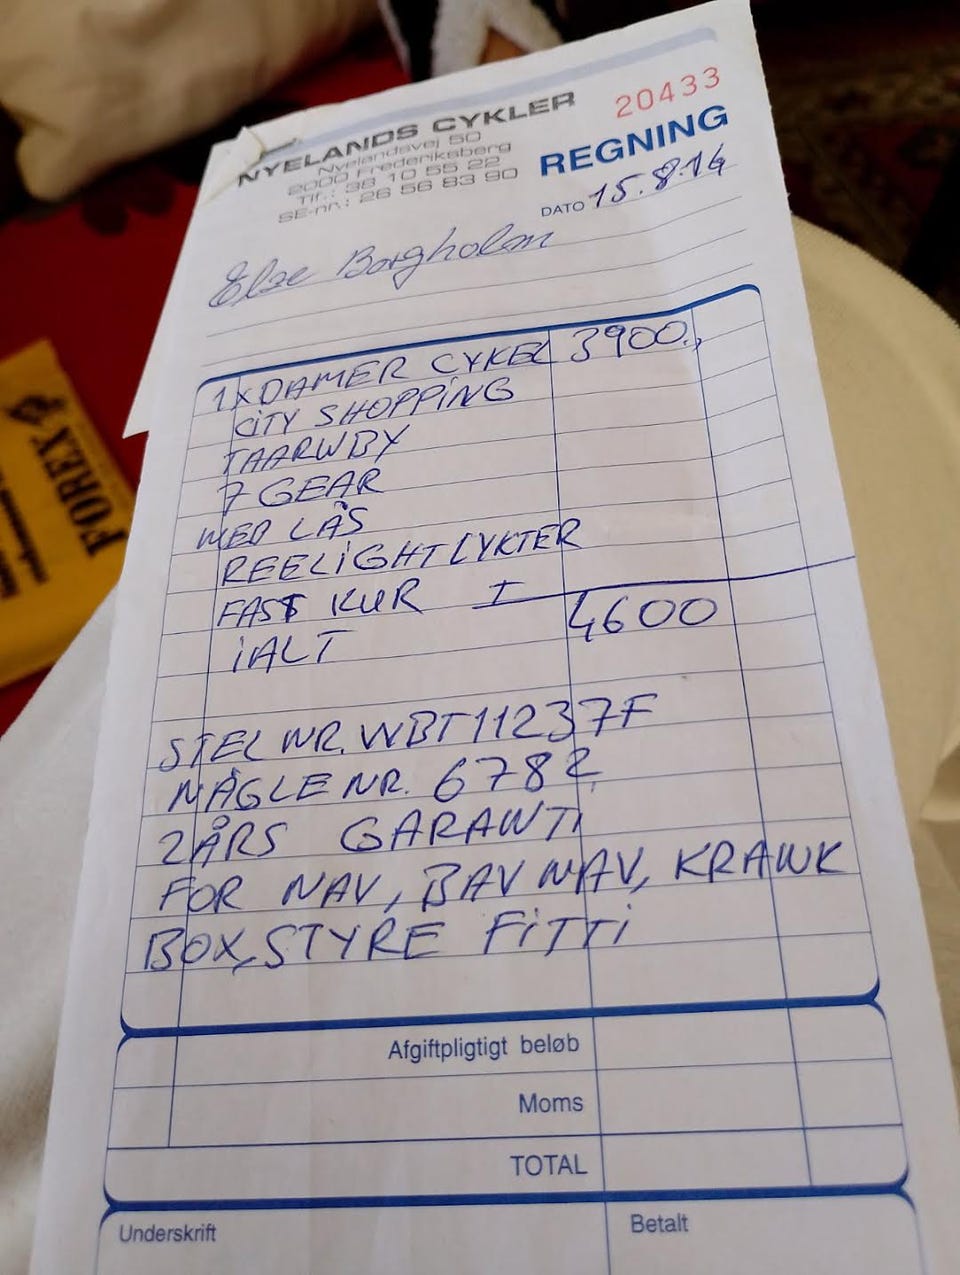 NYELANDS CYKLER
Nyelandsvej 50
2000 Frederiksberg
Tlf.: 38 10 55 22
SE-nr.: 26 56 83 90
20433
REGNING
DATO 15.8.14
Else Borgholm
1 X DAMER CYKEL 3900.,
CITY SHOPPING
TAARNBY
7 GEAR
MED LÅS
REELIGHT LYKTER
FAST KUR
IALT 4600
STEL NR. WBT11237F
NÅGLE NR. 6782
2 ÅRS GARANTI
FOR NAV, BAV NAV, KRANK
BOX, STYRE FITTI
Afgiftpligtigt beløb
Moms
TOTAL
Underskrift
Betalt
FOREX